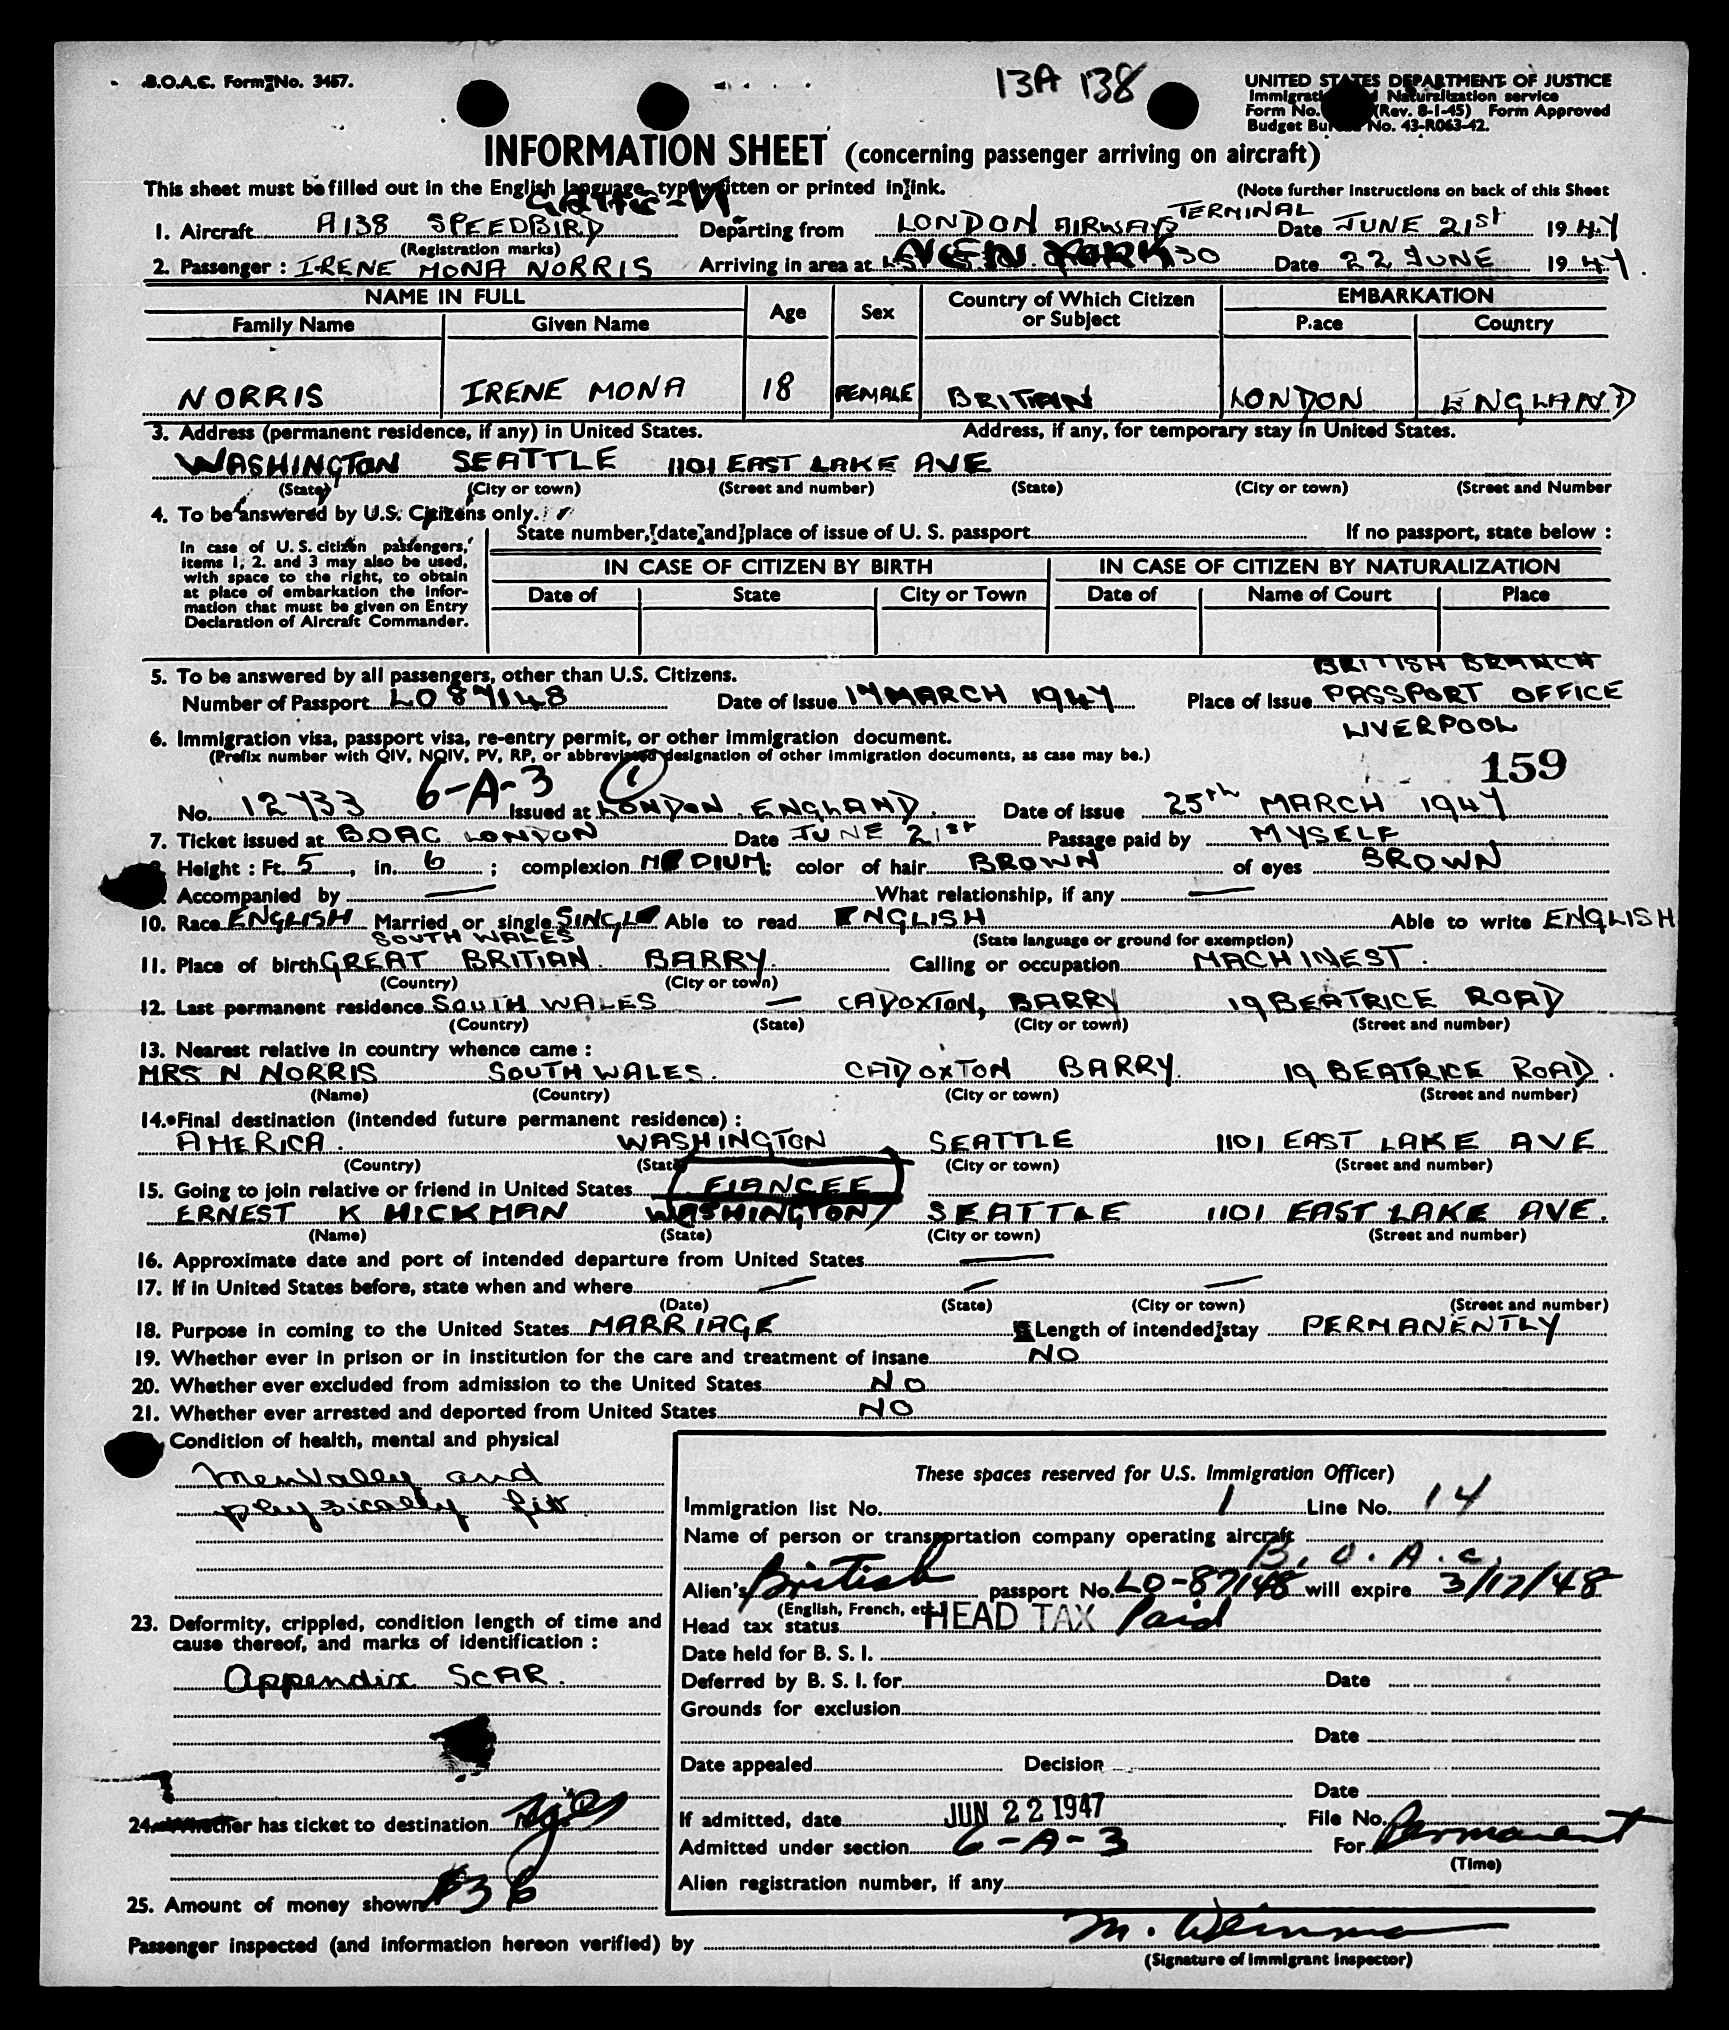 B.O.A.C. Form No. 3457.
13A 138
UNITED STATES DEPARTMENT OF JUSTICE
Immigrati Naturalization service
Form No. (Rev. 8-1-45) Form Approved
Budget Bureau No. 43-R063-42.
INFORMATION SHEET (concerning passenger arriving on aircraft)
This sheet must be filled out in the English language, typewritten or printed in ink. (Note further instructions on back of this Sheet
1. Aircraft A138 SPEEDBIRD Departing from LONDON AIRWAYS TERMINAL Date JUNE 21st 1947
(Registration marks)
2. Passenger : IRENE MONA NORRIS Arriving in area at NEW YORK 30 Date 22 JUNE 1947.
NAME IN FULL Age Sex Country of Which Citizen or Subject EMBARKATION
Family Name Given Name Place Country
NORRIS IRENE MONA 18 FEMALE BRITIAN LONDON ENGLAND
3. Address (permanent residence, if any) in United States. Address, if any, for temporary stay in United States.
WASHINGTON SEATTLE 1101 EAST LAKE AVE
(State) (City or town) (Street and number) (State) (City or town) (Street and Number
4. To be answered by U.S. Citizens only.
State number, date and place of issue of U. S. passport If no passport, state below :
In case of U. S. citizen passengers,
items 1, 2. and 3 may also be used,
with space to the right, to obtain
at place of embarkation the infor-
mation that must be given on Entry
Declaration of Aircraft Commander.
IN CASE OF CITIZEN BY BIRTH IN CASE OF CITIZEN BY NATURALIZATION
Date of State City or Town Date of Name of Court Place
5. To be answered by all passengers, other than U.S. Citizens.
BRITISH BRANCH
Number of Passport LO 87148 Date of Issue 17 MARCH 1947 Place of Issue PASSPORT OFFICE
LIVERPOOL
6. Immigration visa, passport visa, re-entry permit, or other immigration document.
(Prefix number with QIV, NQIV, PV, RP, or abbreviated designation of other immigration documents, as case may be.)
159
6-A-3 1
No. 12733 Issued at LONDON. ENGLAND. Date of issue 25th MARCH 1947
7. Ticket issued at B.O.A.C LONDON Date JUNE 21st Passage paid by MYSELF
Height : Ft. 5, in. 6 ; complexion MEDIUM; color of hair BROWN of eyes BROWN
Accompanied by — What relationship, if any —
10. Race ENGLISH Married or single SINGLE Able to read ENGLISH Able to write ENGLISH
(State language or ground for exemption)
SOUTH WALES
11. Place of birth GREAT BRITIAN. BARRY. Calling or occupation MACHINEST.
(Country) (City or town)
12. Last permanent residence SOUTH WALES — CADOXTON, BARRY 19 BEATRICE ROAD
(Country) (State) (City or town) (Street and number)
13. Nearest relative in country whence came :
MRS N NORRIS SOUTH WALES. CADOXTON BARRY. 19 BEATRICE ROAD.
(Name) (Country) (City or town) (Street and number)
14. Final destination (intended future permanent residence) :
AMERICA. WASHINGTON SEATTLE 1101 EAST LAKE AVE
(Country) (State) (City or town) (Street and number)
15. Going to join relative or friend in United States FIANCEE
ERNEST K HICKMAN WASHINGTON SEATTLE 1101 EAST LAKE AVE.
(Name) (State) (City or town) (Street and number)
16. Approximate date and port of intended departure from United States —
17. If in United States before, state when and where — — —
(Date) (State) (City or town) (Street and number)
18. Purpose in coming to the United States MARRIAGE Length of intended stay PERMANENTLY
19. Whether ever in prison or in institution for the care and treatment of insane NO
20. Whether ever excluded from admission to the United States NO
21. Whether ever arrested and deported from United States NO
Condition of health, mental and physical
mentally and
physically fit
23. Deformity, crippled, condition length of time and
cause thereof, and marks of identification :
Appendix SCAR.
24. Whether has ticket to destination yes
25. Amount of money shown $36
These spaces reserved for U.S. Immigration Officer)
Immigration list No. 1 Line No. 14
Name of person or transportation company operating aircraft
B.O.A.C.
Alien's British passport No. LO-87148 will expire 3/17/48
(English, French, etc.)
Head tax status HEAD TAX Paid
Date held for B. S. I.
Deferred by B. S. I. for Date
Grounds for exclusion
Date
Date appealed Decision
Date
If admitted, date JUN 22 1947 File No.
Admitted under section 6-A-3 For Permanent
(Time)
Alien registration number, if any
Passenger inspected (and information hereon verified) by M.
(Signature of Immigrant Inspector)